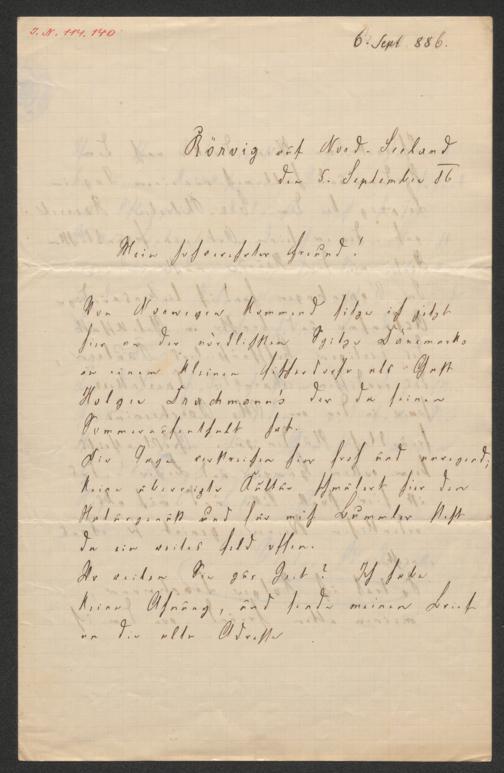 J. N. 114.140
6. Sept 886.
Rörvig auf Nord-Seeland
den 5. September 86
Mein hochverehrter Freund!
Von Norwegen kommend sitze ich jetzt
hier an der nördlichsten Spitze Dänemarks
in einem kleinen Fischerdorfe als Gast
Holger Drachmann's der da seinen
Sommeraufenthalt hat.
Die Tage verstreichen hier froh und anregend;
keine überreizte Kultur schmälert hier den
Naturgenuß und für mich Bummler steht
da ein weites Feld offen.
Wo weilen Sie zur Zeit? Ich habe
keine Ahnung, und sende meinen Brief
an die alte Adresse